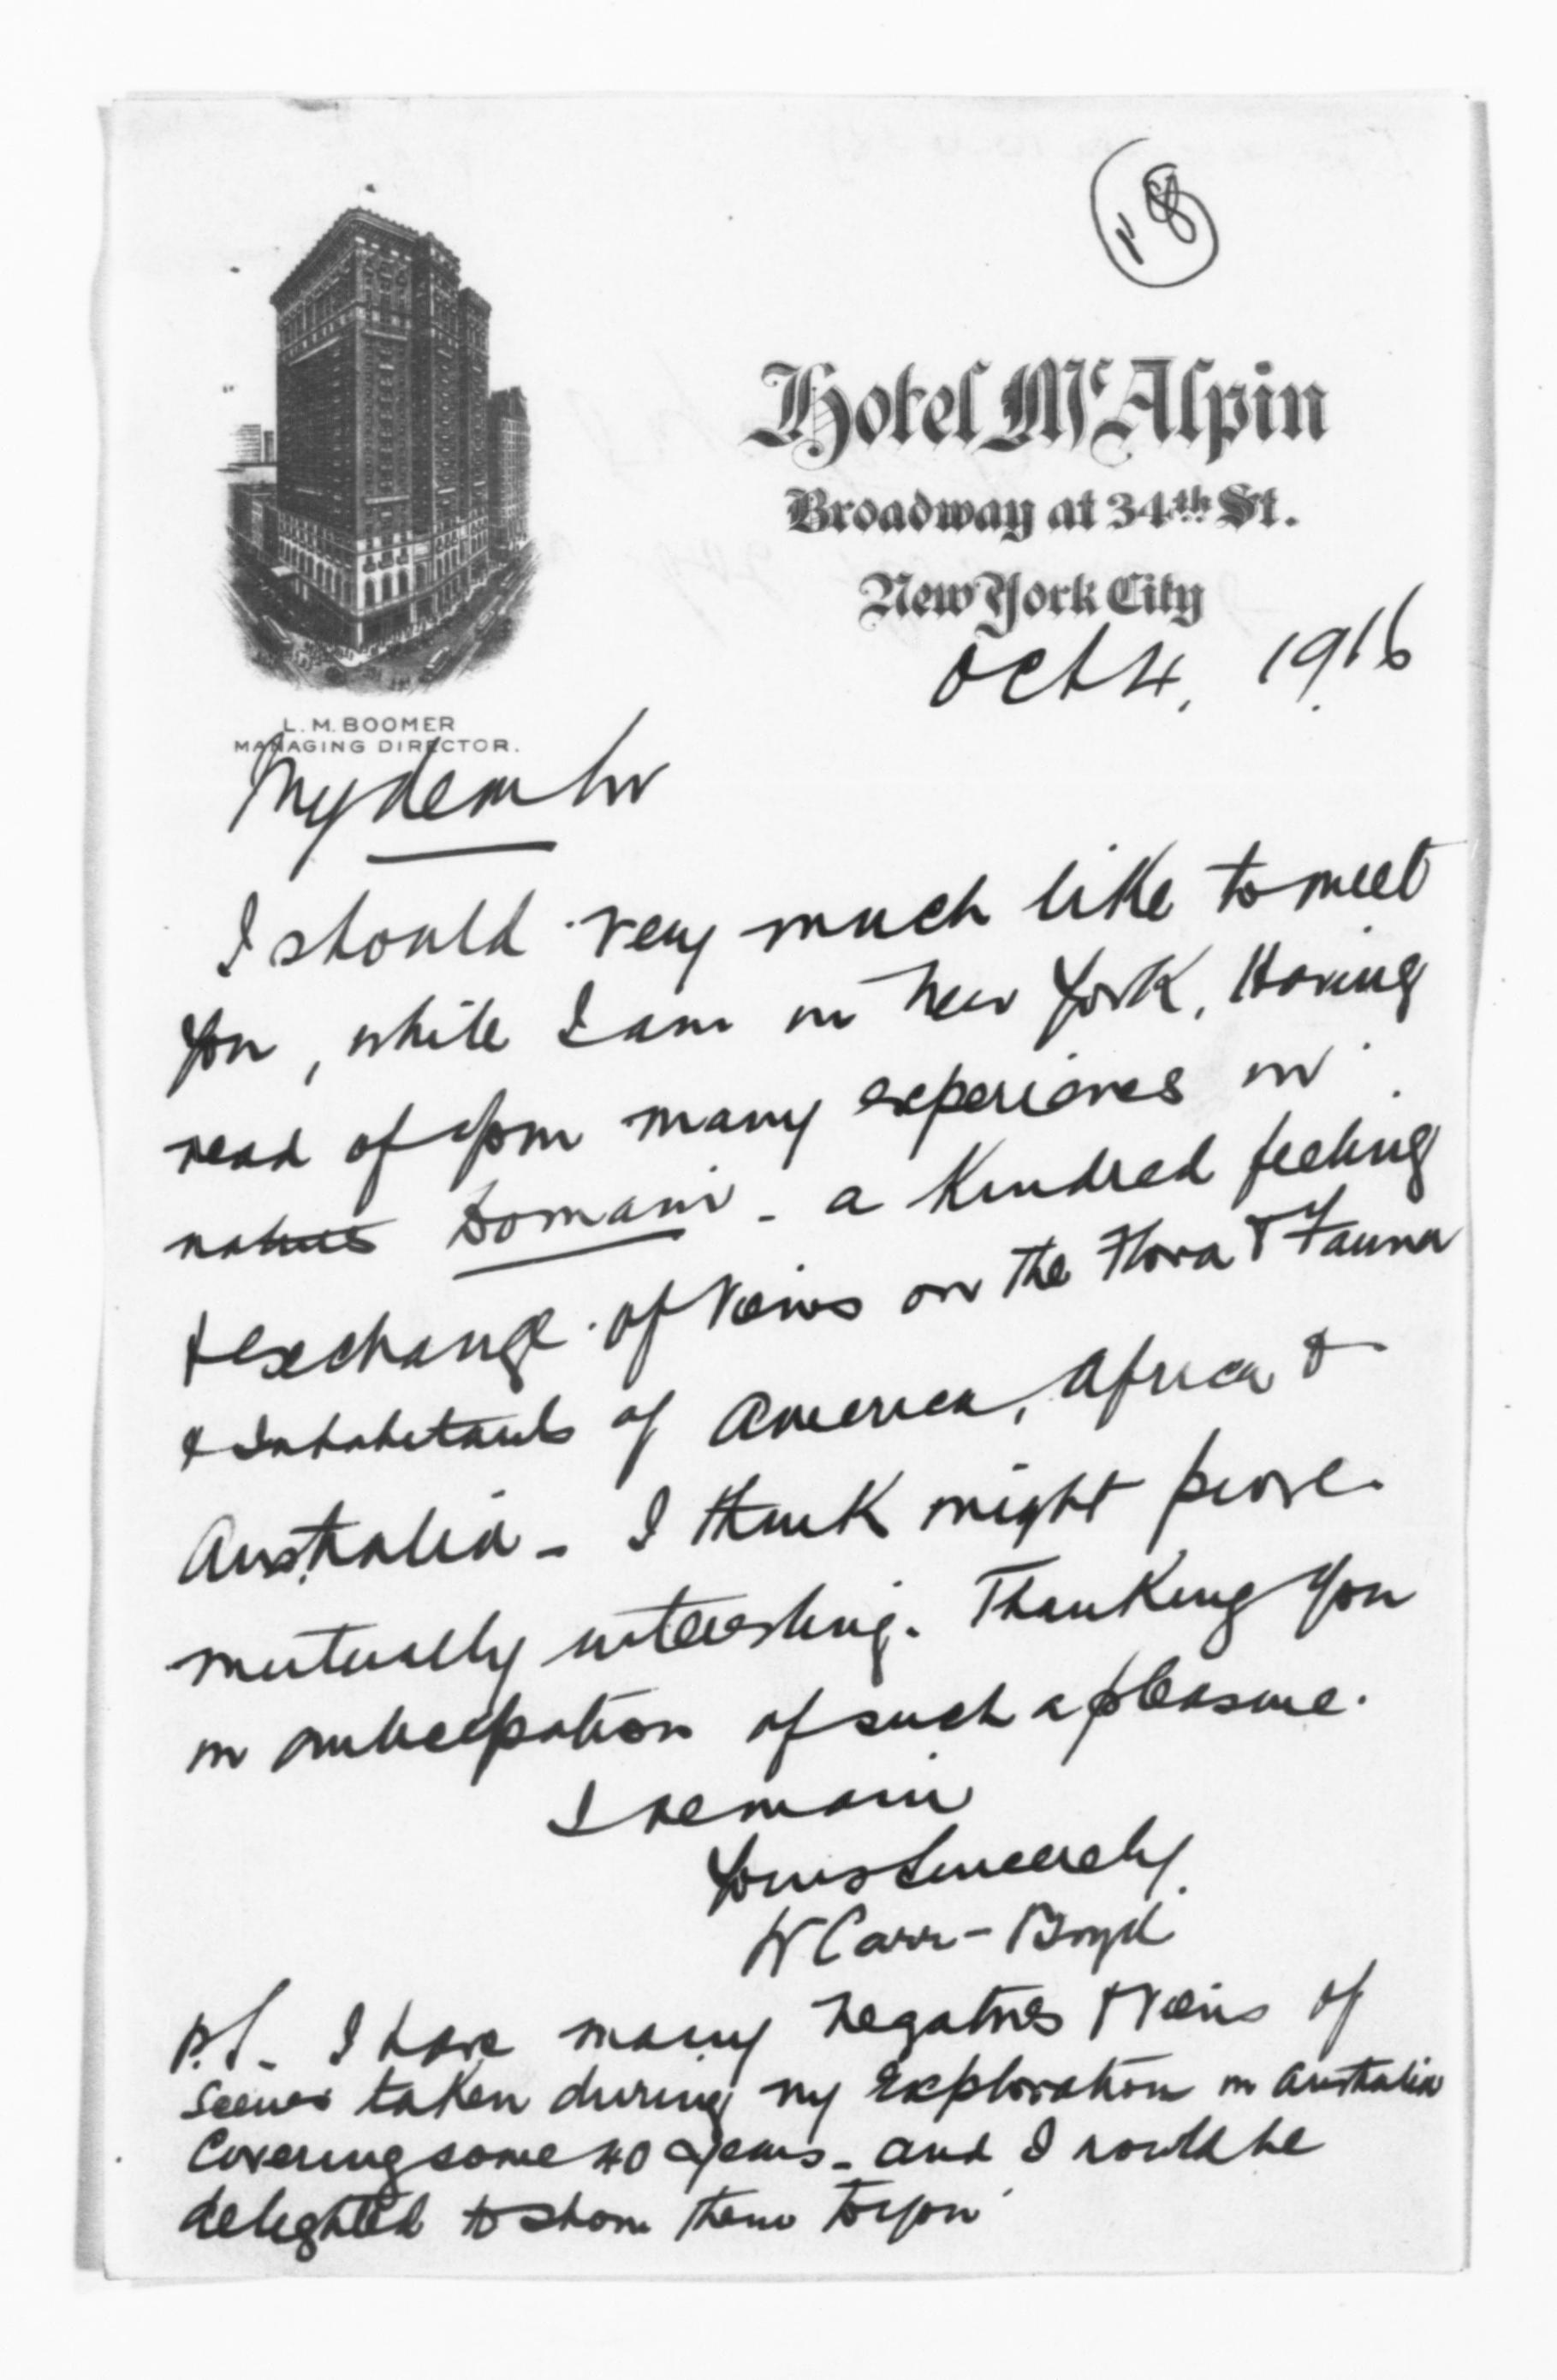 18
Hotel McAlpin
Broadway at 34th St.
New York City
Oct 4, 1916
L. M. BOOMER
MANAGING DIRECTOR.
My dear Sir
I should very much like to meet
You, while I am in New York, Having
read of your many experiences in
natures Domain - a Kindred feeling
& exchange of Views on the Flora & Fauna
& Inhabitants of America, Africa &
Australia - I think might prove
mutually interesting. Thanking You
in anticipation of such a pleasure.
I remain
Yours Sincerely
W Carr-Boyd
P.S. - I have many negatives & Veiws of
Scenes taken during my Exploration in Australia
Covering some 40 years - and I would be
delighted to show them to you